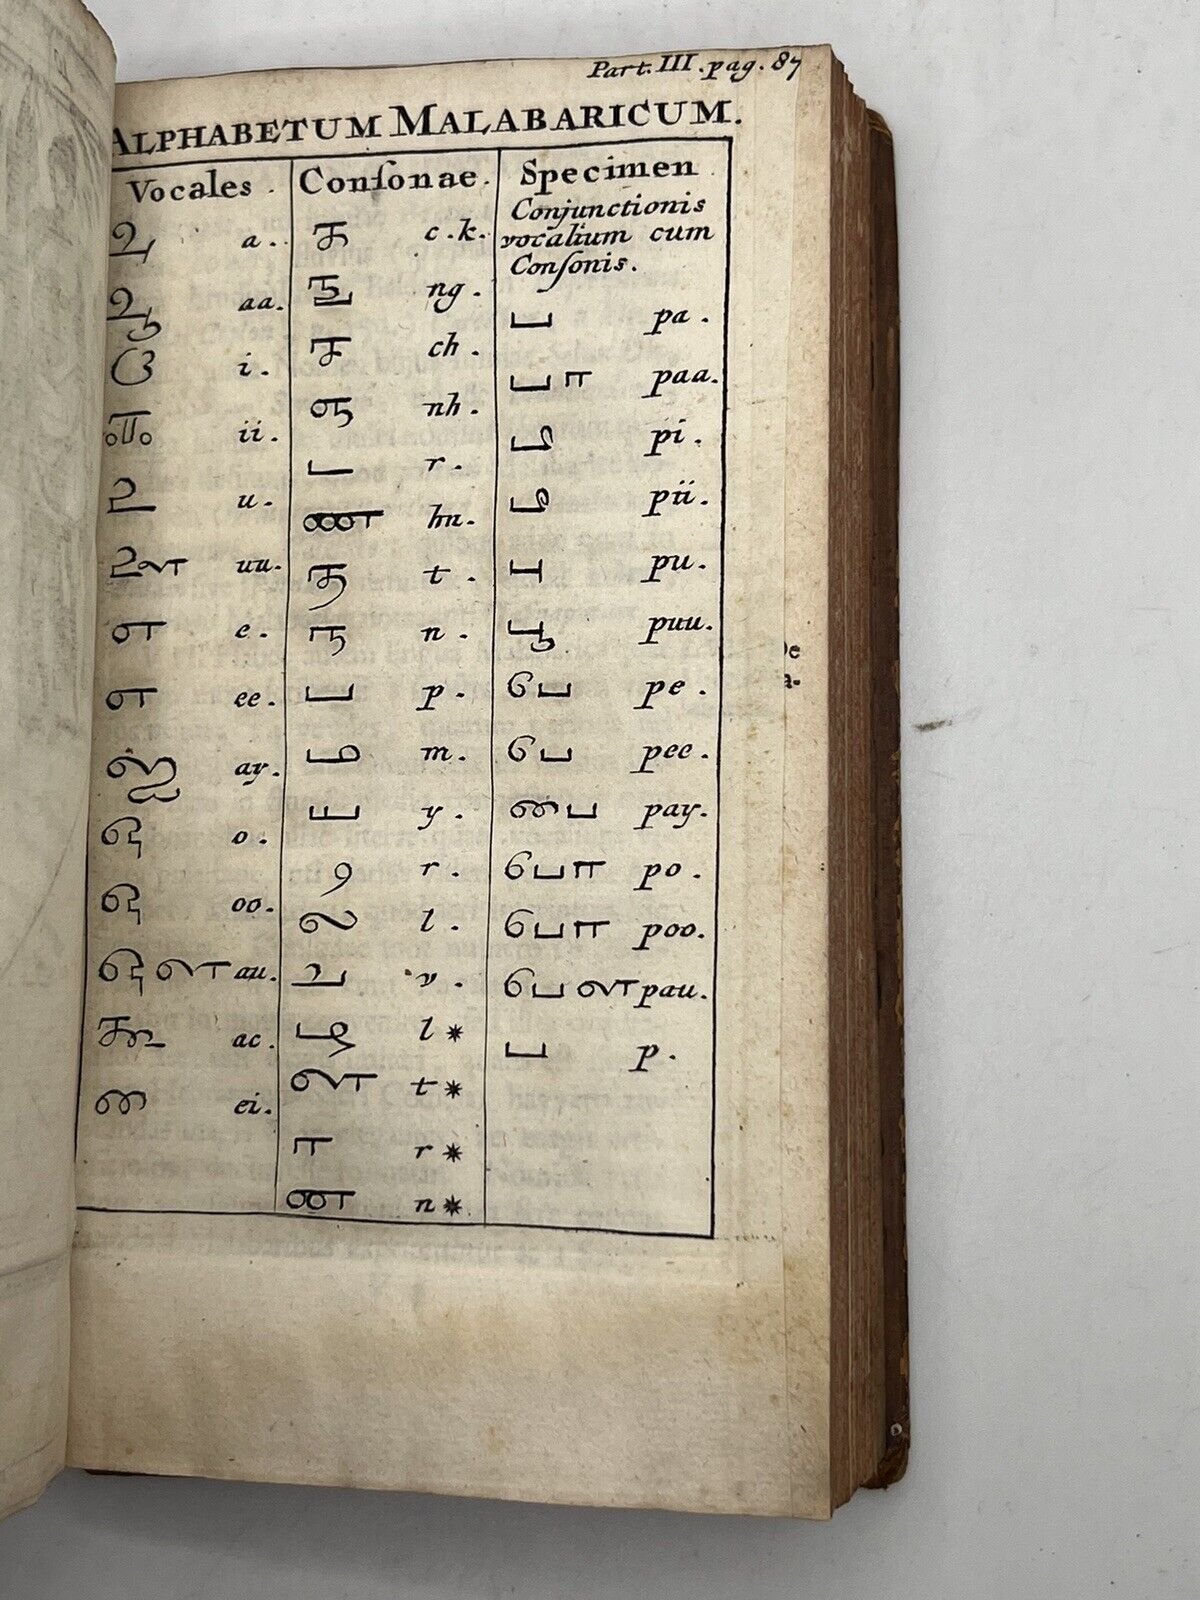 Part. III. pag. 87
ALPHABETUM MALABARICUM.
Vocales.
அ a.
ஆ aa.
இ i.
ஈ ii.
உ u.
ஊ uu.
எ e.
எ ee.
ஐ ay.
ஒ o.
ஒ oo.
ஒள au.
ac.
ei.
Conſonae.
க c.k.
ங ng.
ச ch.
ஞ nh.
ட r.
ண hn.
த t.
ந n.
ப p.
ம m.
ய y.
r.
ல l.
வ v.
ழ l*
ள t*
r*
ன n*
Specimen
Conjunctionis
vocalium cum
Conſonis.
ப pa.
பா paa.
பி pi.
பீ pii.
பு pu.
பூ puu.
பெ pe.
பெ pee.
பை pay.
பொ po.
பொ poo.
பௌ pau.
ப p.